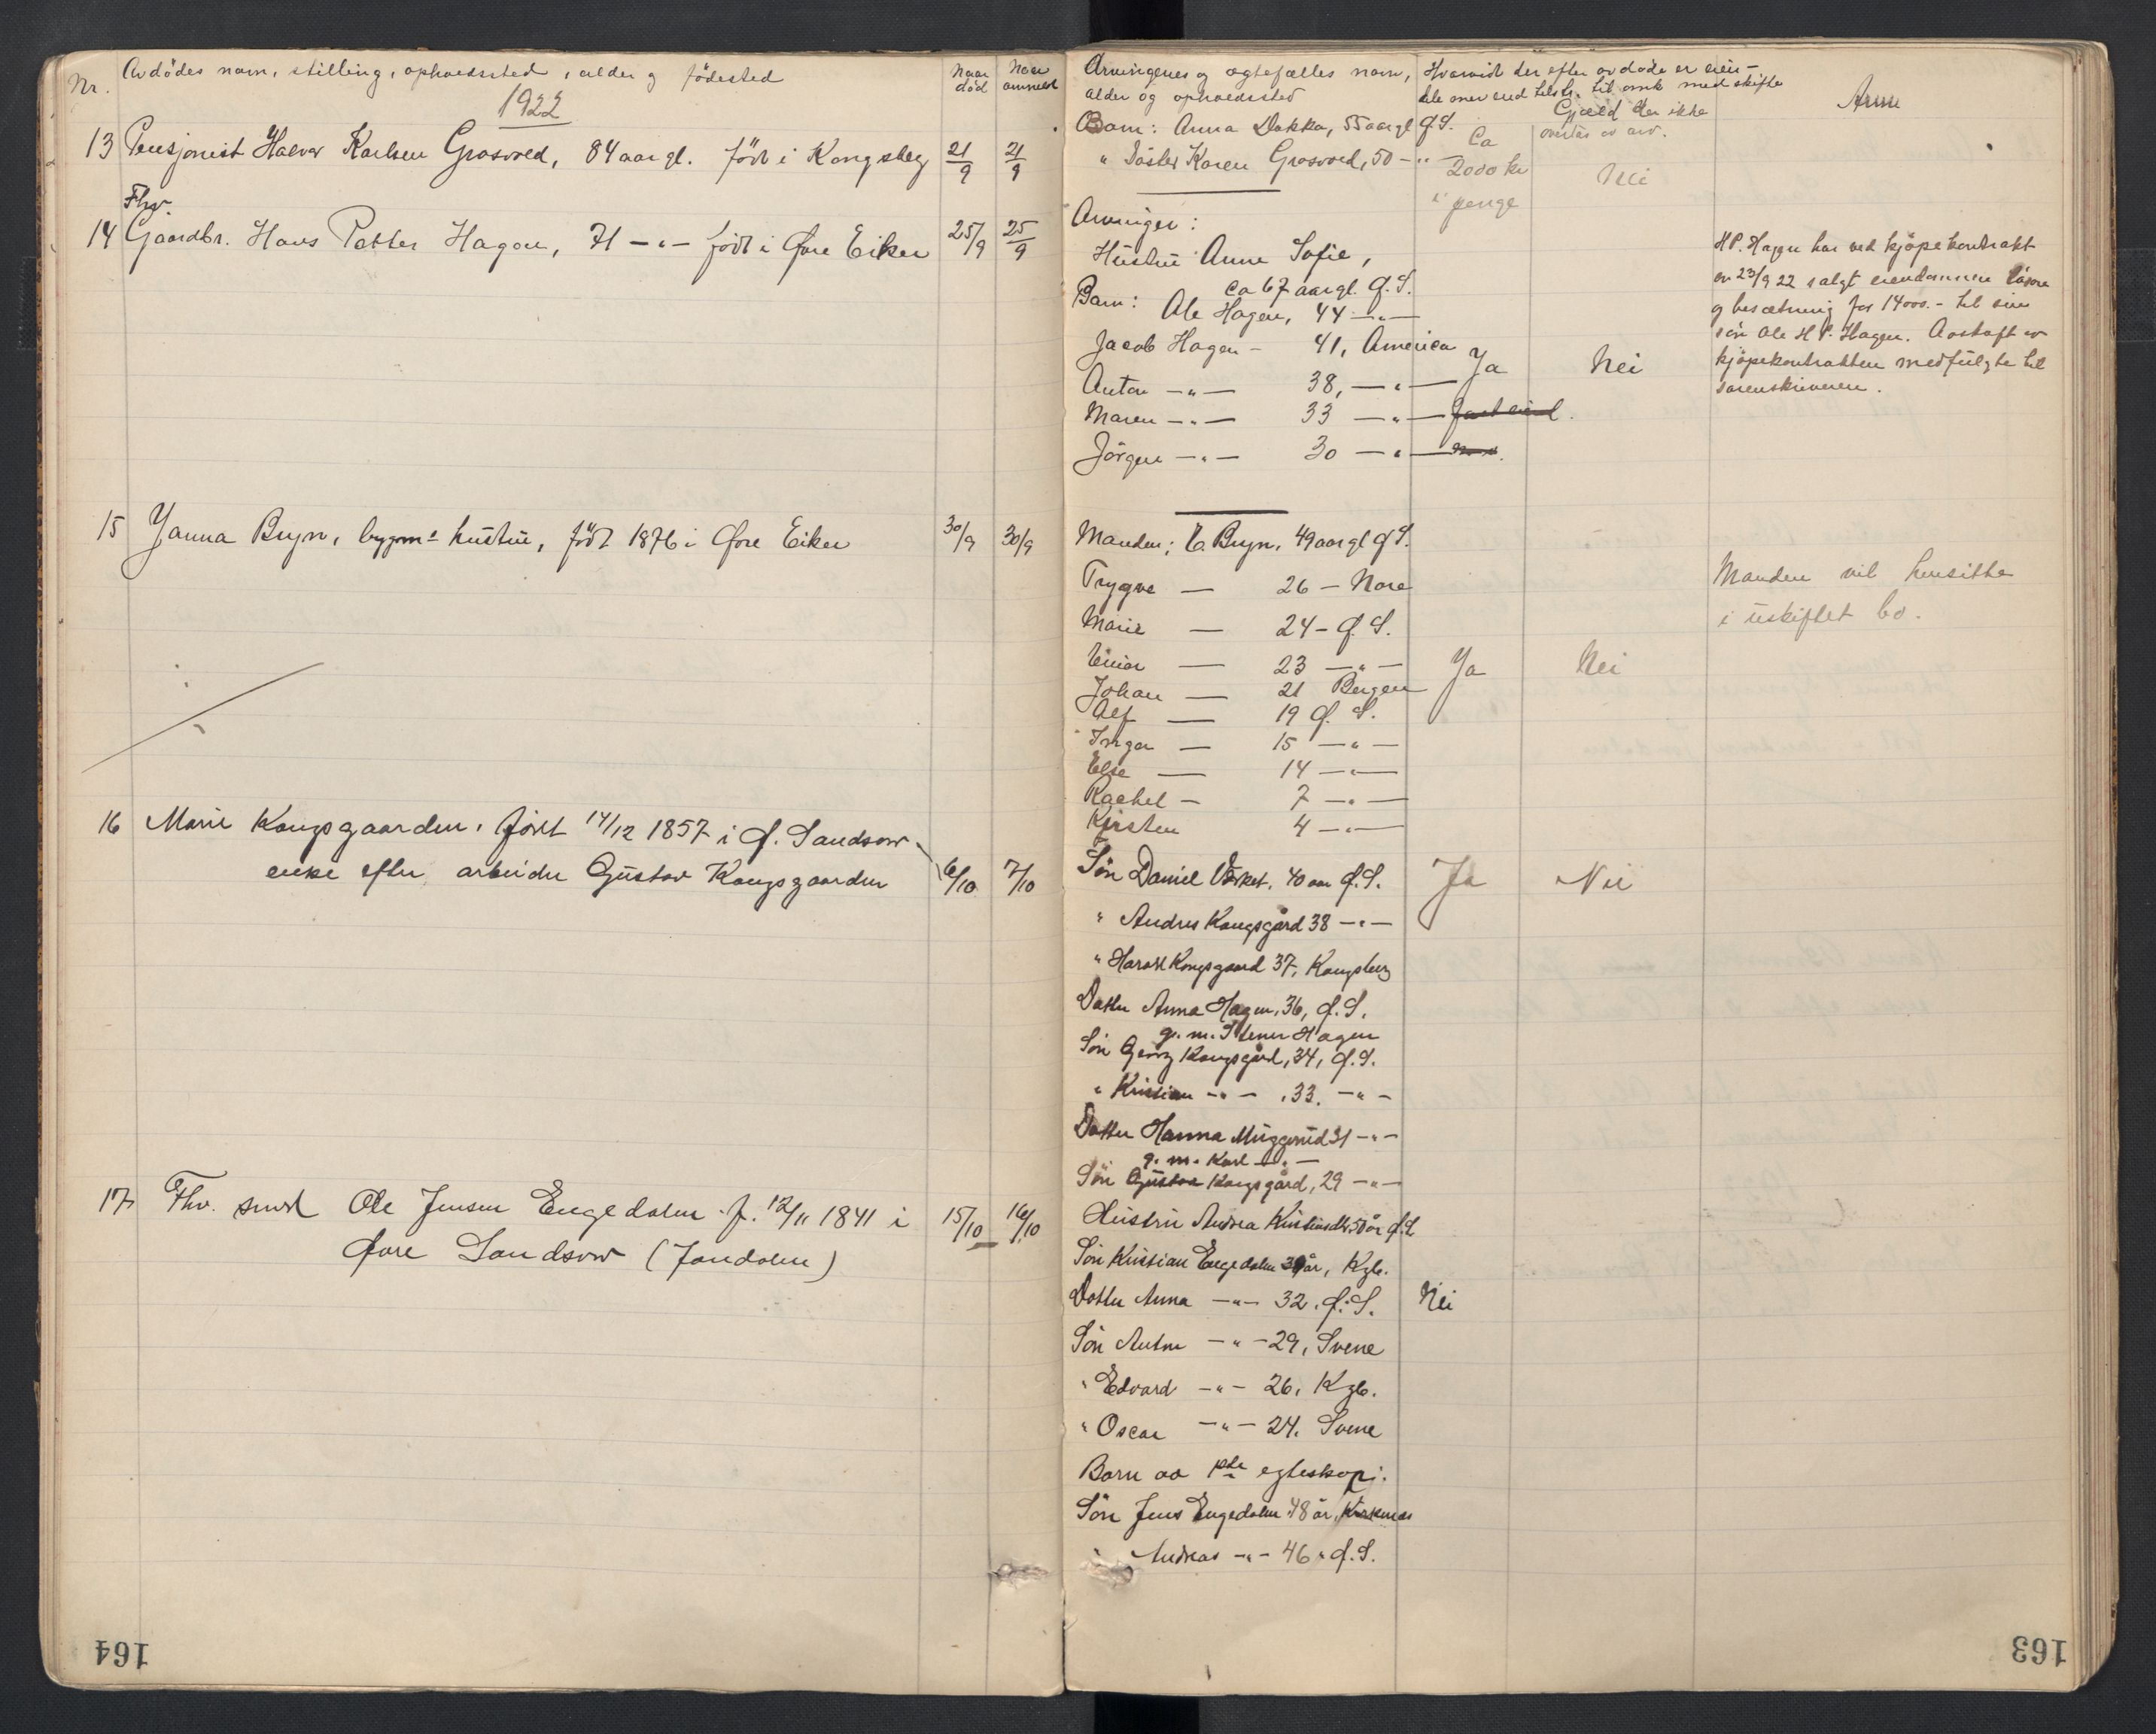 Nr.
Avdödes navn, stilling, opholdssted, alder og födested
Naar död
Naar anmeldt
1922
13 Pensjonist Halvor Karlsen Grosvold, 84 aar gl. född i Kongsberg 21/9 21/9
Fhv.
14 Gaardbr. Hans Petter Hagen, 71 —"— född i Øvre Eiker 25/9 25/9
15 Janna Bryn, bygm. hustru, född 1876 i Øvre Eiker 30/9 30/9
16 Marie Kongsgaarden, född 14/12 1857 i Ø. Sandsvær
enke efter arbeider Gustav Kongsgaarden 6/10 7/10
17 Fhv. smed Ole Jensen Engedalen f. 12/11 1841 i 15/10 16/10
Øvre Sandsvær (Jondalen)
164
Arvingenes og egtefælles navn,
alder og opholdssted
Hvorvidt der efter avdöde er eien-
dele mer end tilstr. til omk. med skifte
Gjæld der ikke
overtas av arv.
Anm
Barn: Anna Dokka, 55 aar gl Ø.S.
" Söster Karen Grosvold, 50 —"—
Ca
2000 kr
i penge
Nei
Arvinger:
Hustru Anne Sofie,
ca 67 aar gl. Ø.S.
Barn: Ole Hagen, 44 —"—
Jacob Hagen - 41, America
Anton —"— 38, —"—
Maren —"— 33 —"—
Jörgen —"— 30 —"—
Ja
Nei
H.P. Hagen har ved kjöpekontrakt
av 23/9 22 solgt eiendommen lösöre
og besætning for 14000.- til sin
sön Ole H.P. Hagen. Avskrift av
kjöpekontrakten medfulgte til
sorenskriveren.
Manden: E. Bryn, 49 aar gl Ø S.
Trygve — 26 — Nore
Marie — 24 - Ø. S.
Einar — 23 —"—
Johan — 21 Bergen
Alf — 19 Ø. S.
Inga — 15 —"—
Else — 14 —"—
Rachel — 7 —"—
Kirsten 4 —"—
Ja
Nei
Manden vil hensitte
i uskiftet bo.
Sön Daniel Verket, 40 aar Ø.S. Ja Nei
" Andres Kongsgård 38 —"—
" Harald Kongsgaard 37, Kongsberg
Datter Anna Hagen, 36, Ø.S.
g. m. Stener Hagen
Sön Georg Kongsgård, 34, Ø.S.
" Kristian —"— , 33. —"—
Datter Hanna Muggerud 31 —"—
g. m. Karl —"—
Sön Gustav Kongsgård, 29 —"—
Hustru Andrea Kristiansdtr. 50 år Ø.S
Sön Kristian Engedalen 39 år, Kgb.
Datter Anna —"— 32. Ø.S. Nei
Sön Anton —"— 29, Svene
" Edvard —"— 26, Kgb.
" Oscar —"— 24. Svene
Barn av 1ste egteskap:
Sön Jens Engedalen 48 år, Kirkenes
" Andreas —"— 46 " Ø.S.
163